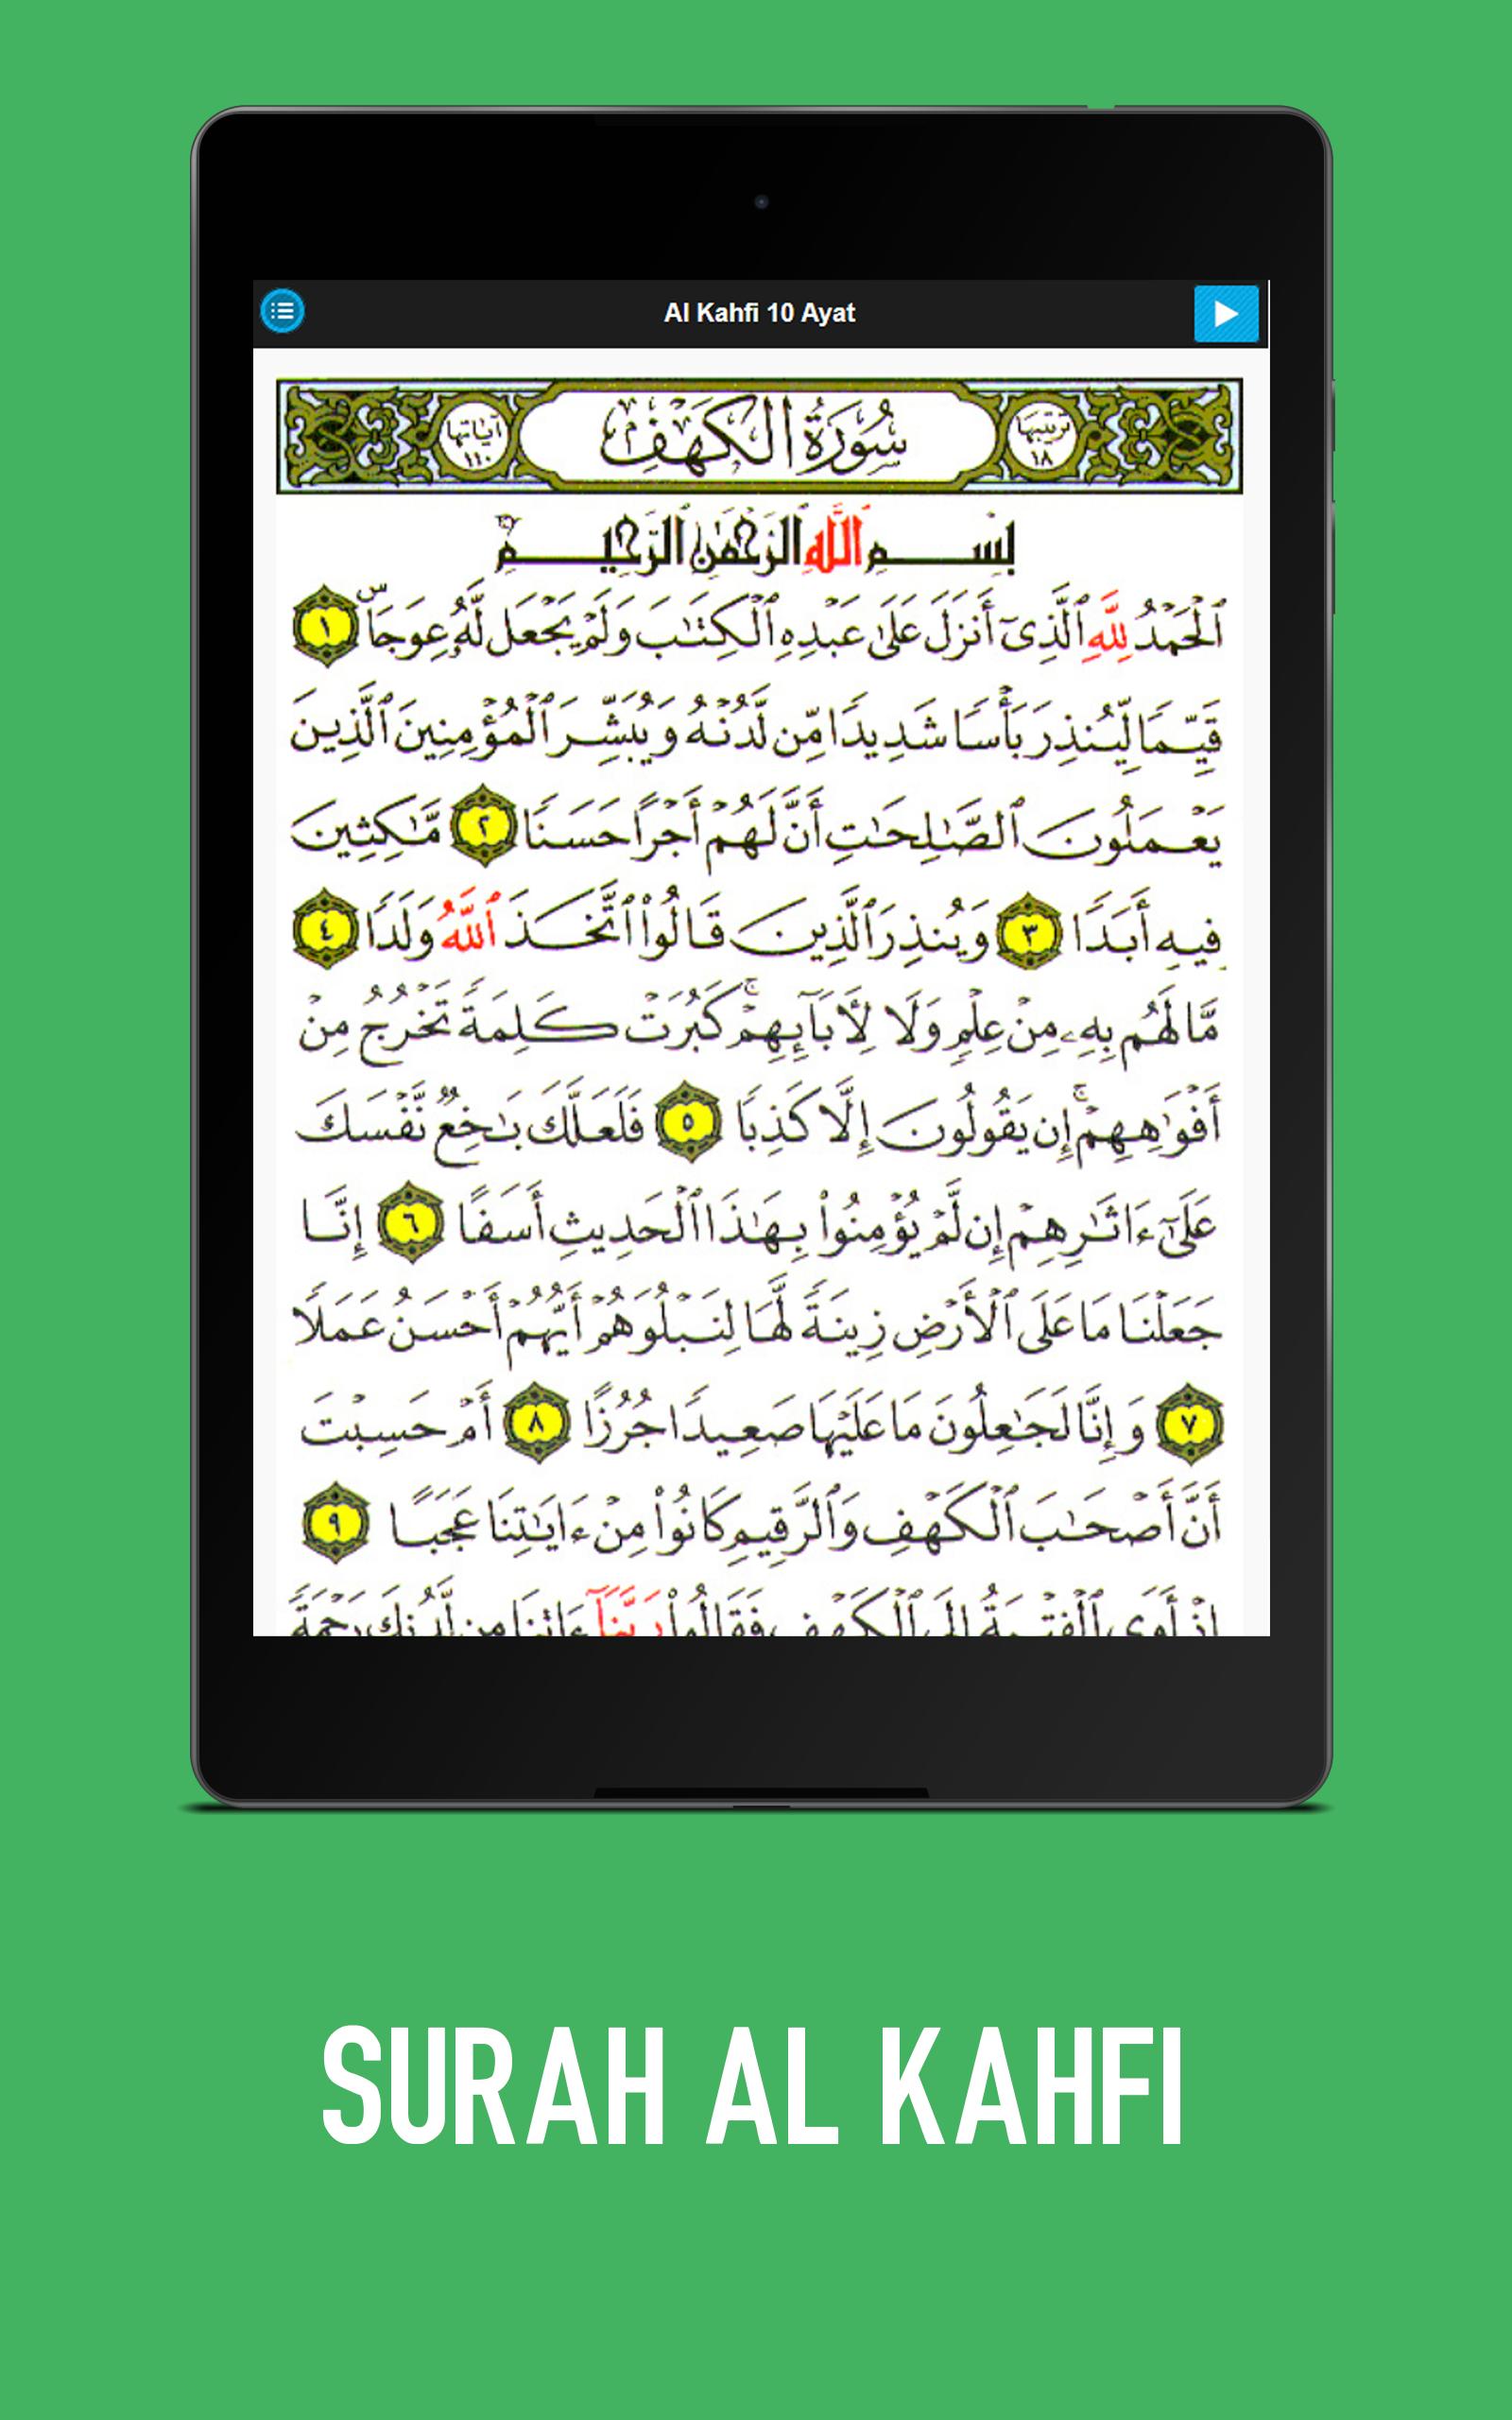 Al Kahfi 10 Ayat
ترتيبها ١٨ سُورَةُ الكَهْفِ آياتها ١١٠
بِسْمِ ٱللَّهِ ٱلرَّحْمَٰنِ ٱلرَّحِيمِ
ٱلْحَمْدُ لِلَّهِ ٱلَّذِىٓ أَنزَلَ عَلَىٰ عَبْدِهِ ٱلْكِتَٰبَ وَلَمْ يَجْعَل لَّهُۥ عِوَجَاۜ ١
قَيِّمًا لِّيُنذِرَ بَأْسًا شَدِيدًا مِّن لَّدُنْهُ وَيُبَشِّرَ ٱلْمُؤْمِنِينَ ٱلَّذِينَ
يَعْمَلُونَ ٱلصَّٰلِحَٰتِ أَنَّ لَهُمْ أَجْرًا حَسَنًا ٢ مَّٰكِثِينَ
فِيهِ أَبَدًا ٣ وَيُنذِرَ ٱلَّذِينَ قَالُوا۟ ٱتَّخَذَ ٱللَّهُ وَلَدًا ٤
مَّا لَهُم بِهِۦ مِنْ عِلْمٍ وَلَا لِأَبَآئِهِمْ ۚ كَبُرَتْ كَلِمَةً تَخْرُجُ مِنْ
أَفْوَٰهِهِمْ ۚ إِن يَقُولُونَ إِلَّا كَذِبًا ٥ فَلَعَلَّكَ بَٰخِعٌ نَّفْسَكَ
عَلَىٰٓ ءَاثَٰرِهِمْ إِن لَّمْ يُؤْمِنُوا۟ بِهَٰذَا ٱلْحَدِيثِ أَسَفًا ٦ إِنَّا
جَعَلْنَا مَا عَلَى ٱلْأَرْضِ زِينَةً لَّهَا لِنَبْلُوَهُمْ أَيُّهُمْ أَحْسَنُ عَمَلًا
٧ وَإِنَّا لَجَٰعِلُونَ مَا عَلَيْهَا صَعِيدًا جُرُزًا ٨ أَمْ حَسِبْتَ
أَنَّ أَصْحَٰبَ ٱلْكَهْفِ وَٱلرَّقِيمِ كَانُوا۟ مِنْ ءَايَٰتِنَا عَجَبًا ٩
إِذْ أَوَى ٱلْفِتْيَةُ إِلَى ٱلْكَهْفِ فَقَالُوا۟ رَبَّنَآ ءَاتِنَا مِن لَّدُنكَ رَحْمَةً
SURAH AL KAHFI